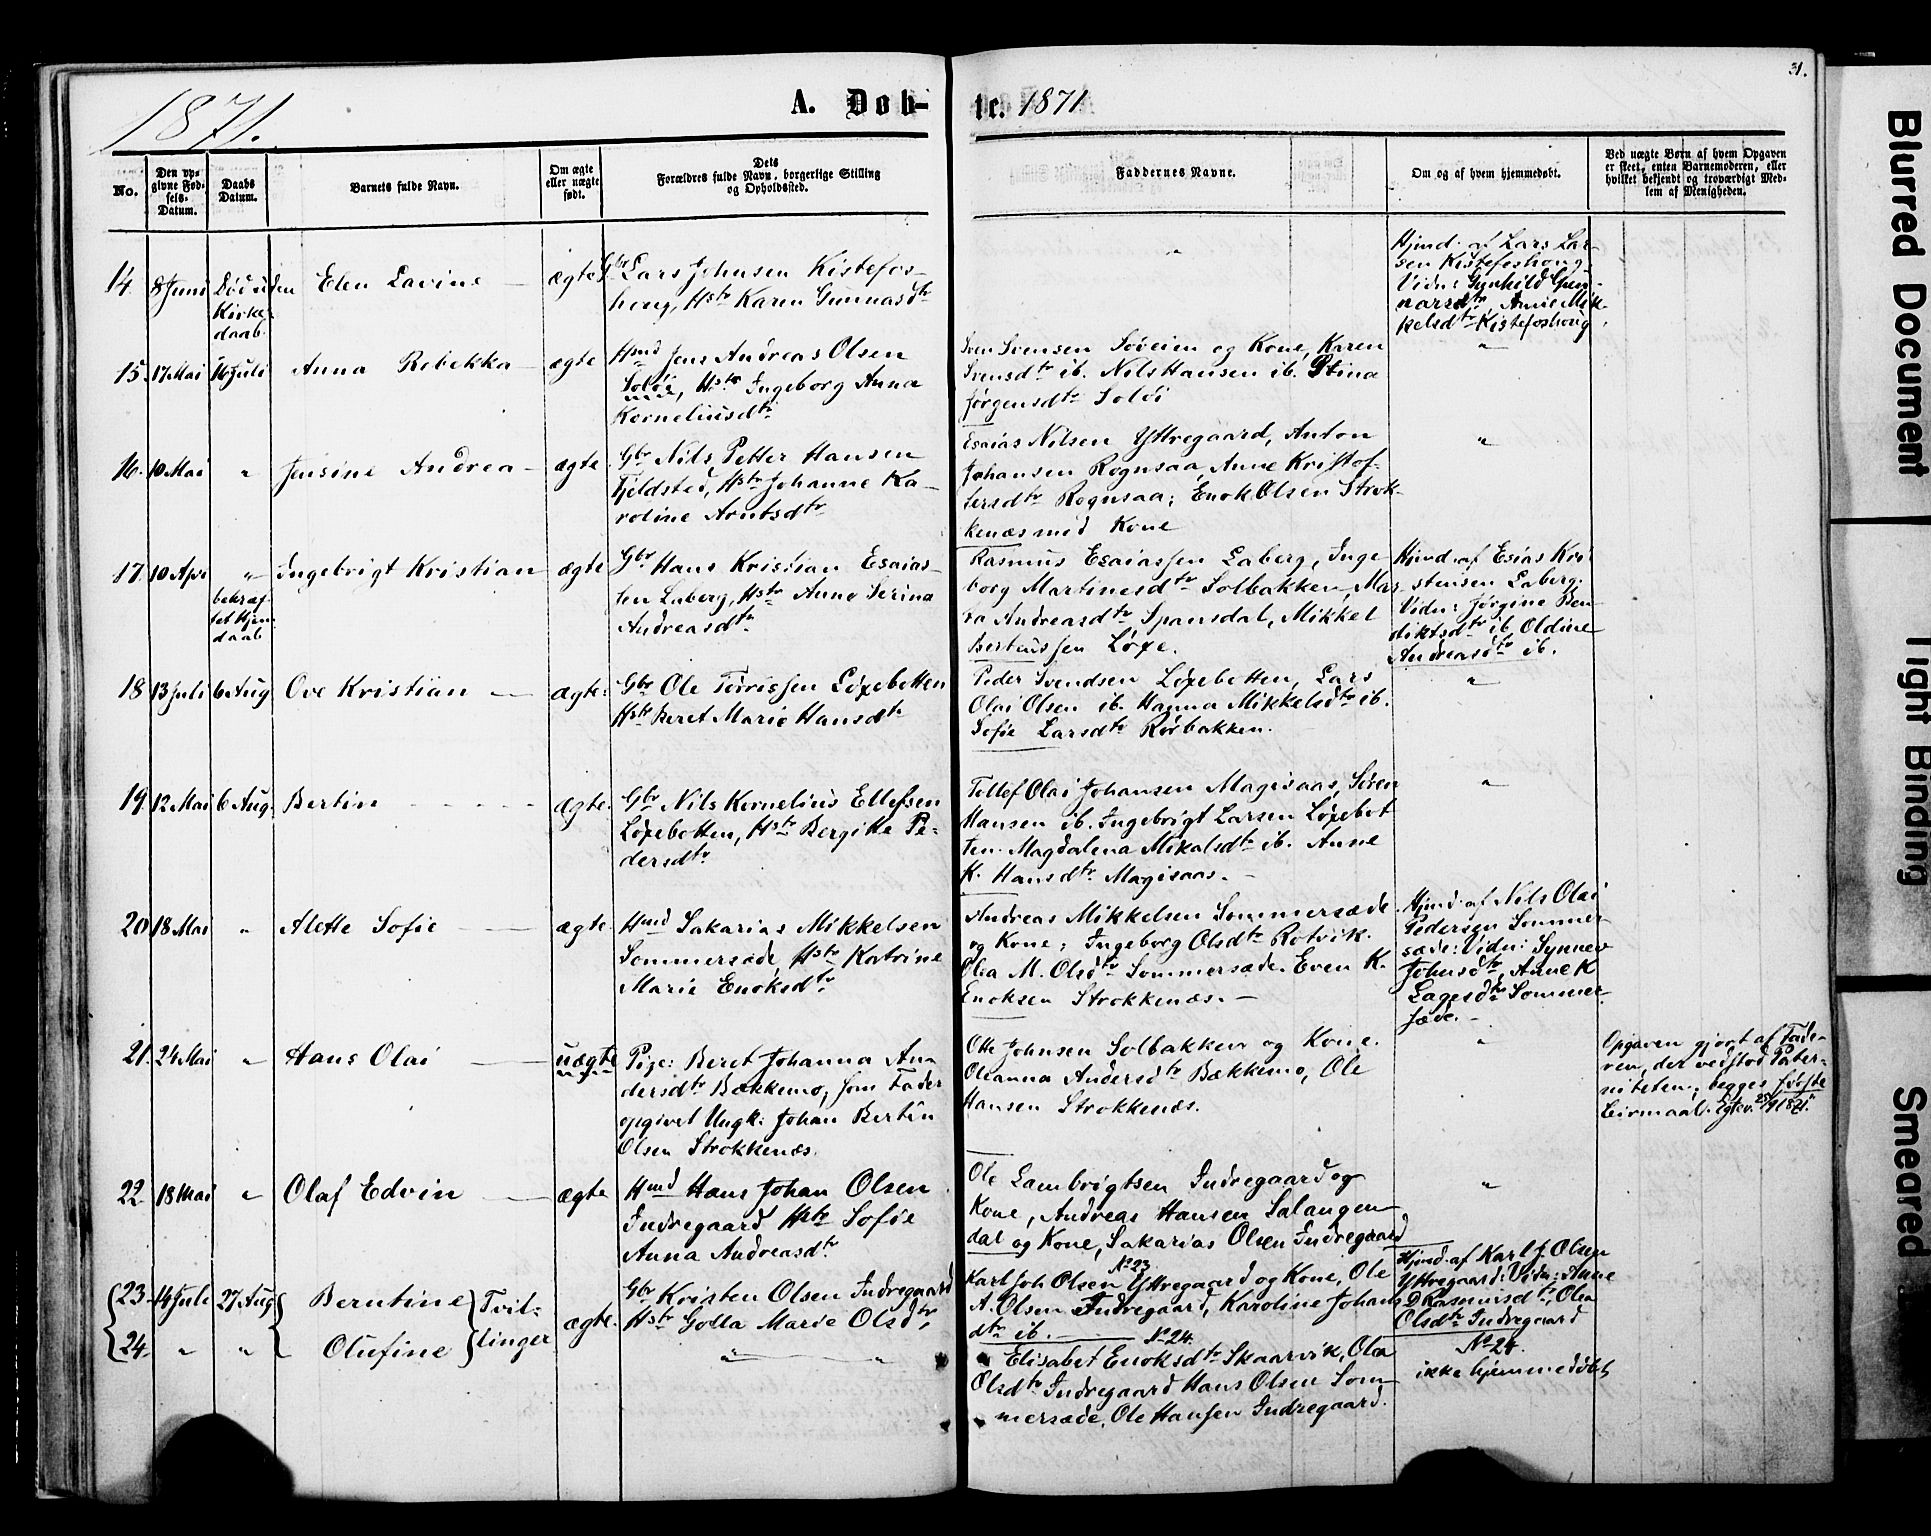 31.
1871.
A. Døb-
te. 1871
No.
Den op-
givne Fød-
sels-
Datum.
Daabs
Datum.
Barnets fulde Navn.
Om ægte
eller uægte
født.
Dets
Forældres fulde Navn, borgerlige Stilling
og Opholdssted.
Faddernes Navne.
Om og af hvem hjemmedøbt.
Ved uægte Børn af hvem Opgaven
er skeet, enten Barnemoderen, eller
hvilket bekjendt og troværdigt Med-
lem af Menigheden.
14. 8 Juni Død uden
Kirke-
daab.
Elen Lavine — ægte
Gbr Lars Johnsen Kistefos-
houg, Hstr Karen Gunnarsdtr
"
Hjmd. af Lars Lar-
sen Kistefoshoug.
Vidn: Gunhild Gun-
narsdtr, Anne Mik-
kelsdtr Kistefoshoug.
15. 17 Mai 16 Juli Anna Rebekka — ægte
Hmd Jens Andreas Olsen
Soløi, Hstr Ingeborg Anna
Korneliusdtr
Sven Svensen Søveien og Kone, Karen
Svensdtr ib. Nils Hansen ib. Stina
Jørgensdtr Soløi
"
16. 10 Mai " Jensine Andrea — ægte
Gbr Nils Petter Hansen
Fjeldsted, Hstr Johanne Ka-
roline Arntsdtr
Esaias Nilsen Yttregaard, Anton
Johansen Rognsaa, Anne Kristof-
fersdtr Rognsaa; Enok Olsen Strok-
kenæs med Kone
"
17. 10 Apr " bekræf-
tet Hjem-
daab
Ingebrigt Kristian ægte
Gbr Hans Kristian Esaias-
sen Laberg, Hstr Anne Serina
Andreasdtr
Rasmus Esaiassen Laberg, Inge-
borg Martinesdtr Solbakken, Ma-
ra Andreasdtr Spansdal, Mikkel
Berteussen Løxe.
Hjmd. af Esias Kri-
stensen Laberg.
Vidn: Jørgine Ben-
diktsdtr ib Oldine
Andreasdtr ib.
18 13 Juli 6 Aug Ove Kristian — ægte.
Gbr Ole Torrissen Løxebotten
Hstr Beret Marie Hansdtr
Peder Svendsen Løxebotten, Lars
Olai Olsen ib. Hanna Mikkelsdtr ib.
Sofie Larsdtr Rørbakken.
"
19. 12 Mai 6 Aug. Bertin - - - - ægte.
Gbr Nils Kornelius Ellefsen
Løxebotten, Hstr Bergitte Pe-
dersdtr
Tollef Olai Johansen Magisaas, Søren
Hansen ib. Ingebrigt Larsen Løxebot-
ten. Magdalena Mikalsdtr ib. Anne
K. Hansdtr Magisaas. —
"
20 18 Mai " Alette Sofie — ægte
Hmd Sakarias Mikkelsen
Sommersæde Hstr Katrine
Marie Enoksdtr
Andreas Mikkelsen Sommersæde
og Kone; Ingeborg Olsdtr Rotvik.
Olea M. Olsdtr Sommersæde. Even K.
Enoksen Strokkenæs. —
Hjmd. af Nils Olai
Pedersen Sommer-
sæde: Vidn: Synnev
Johnsdtr, Anne K
Lagesdtr Sommer-
sæde. —
21. 24 Mai " Hans Olai — uægte
Pige: Beret Johanna An-
dersdtr Bækkemo, som Fader
opgivet Ungk: Johan Bertin
Olsen Strokkenæs.
Otte Johnsen Solbakken og Kone.
Oleanna Andersdtr Bækkemo, Ole
Hansen Strokkenæs.
"
Opgaven gjort af Fade-
ren, der vedstod Pater-
niteten; begges første
Leirmaal.
22 18 Mai " Olaf Edvin — ægte
Hmd Hans Johan Olsen
Indregaard Hstr Sofie
Anna Andreasdtr
Ole Lambrigtsen Indregaard og
Kone, Andreas Hansen Salangen-
dal og Kone, Sakarias Olsen Indregaard
"
23. 14 Juli 27 Aug Berntine Tvil-
24. " " Olufine linger
ægte.
Gbr Kristen Olsen Indregaard
Hstr Golla Marie Olsdtr
" "
No 23
Karl Joh Olsen Yttregaard og Kone, Ole
A. Olsen Indregaard, Karoline Johans-
dtr ib. — No 24.
Elisabet Enoksdtr Skaarvik, Olea
Olsdtr Indregaard Hans Olsen Som-
mersæde, Ole Hansen Indregaard.
Hjmd. af Karl J. Olsen
Yttregaard: Vidn: Anne
D Rasmusdtr, Olea
Olsdtr Indregaard
No 24.
ikke hjemmedøbt
Blurred Document
Tight Binding
Smeared